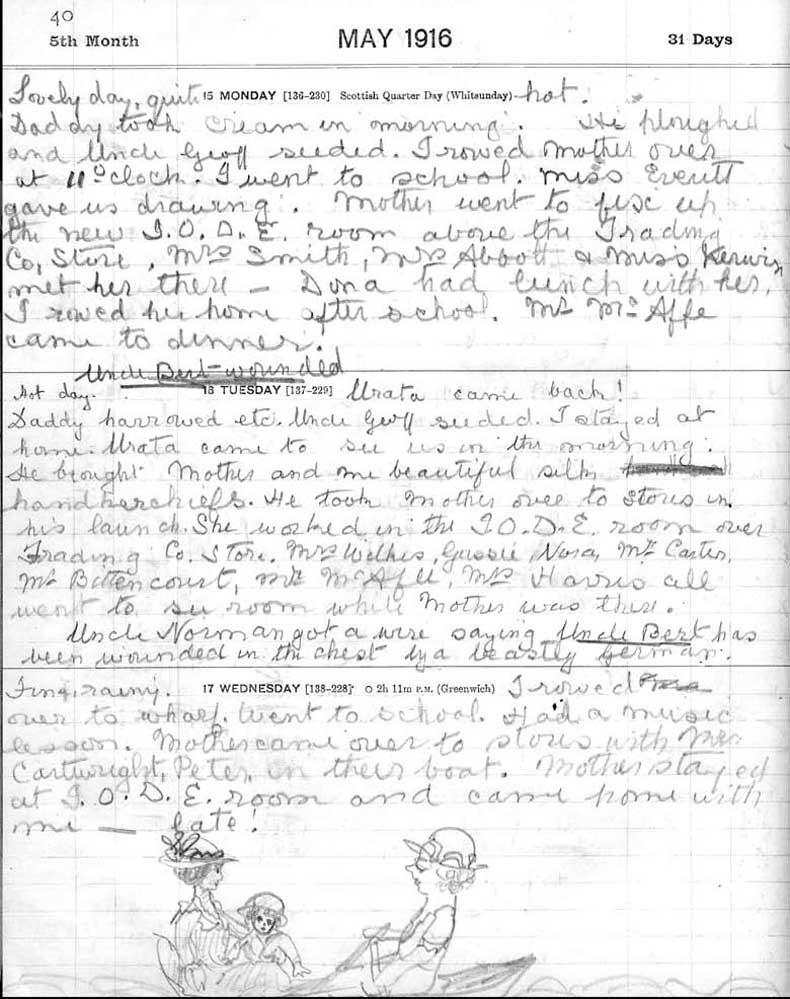 40
5th Month MAY 1916 31 Days
Lovely day, quite 15 MONDAY [136-230] Scottish Quarter Day (Whitsunday) hot.
Daddy took cream in morning. He ploughed
and Uncle Geoff seeded. I rowed Mother over
at 11 o'clock. I went to school. Miss Everitt
gave us drawing. Mother went to fix up
the new I.O.D.E. room above the Trading
Co, Store, Mrs Smith, Mrs Abbott & Miss Kerwin
met her there – Dona had lunch with her.
I rowed her home after school. Mr McAffe
came to dinner.
Uncle Bert wounded
Hot day. 16 TUESDAY [137-229] Urata came back!
Daddy harrowed etc. Uncle Geoff seeded. I stayed at
home. Urata came to see us in the morning.
He brought Mother and me beautiful silk
handkerchiefs. He took Mother over to stores in
his launch. She worked in the I.O.D.E. room over
Trading Co. Store. Mrs Wilkes, Gussie, Nora, Mr Carter,
Mr Bittencourt, Mr McAfee, Mrs Harris all
went to see room while Mother was there.
Uncle Norman got a wire saying Uncle Bert has
been wounded in the chest by a beastly German.
Fine, rainy. 17 WEDNESDAY [138-228] O 2h 11m P.M. (Greenwich) I rowed
over to wharf. Went to school. Had a music
lesson. Mother came over to stores with Mrs
Cartwright, Peter, in their boat. Mother stayed
at I.O.D.E. room and came home with
me — late!